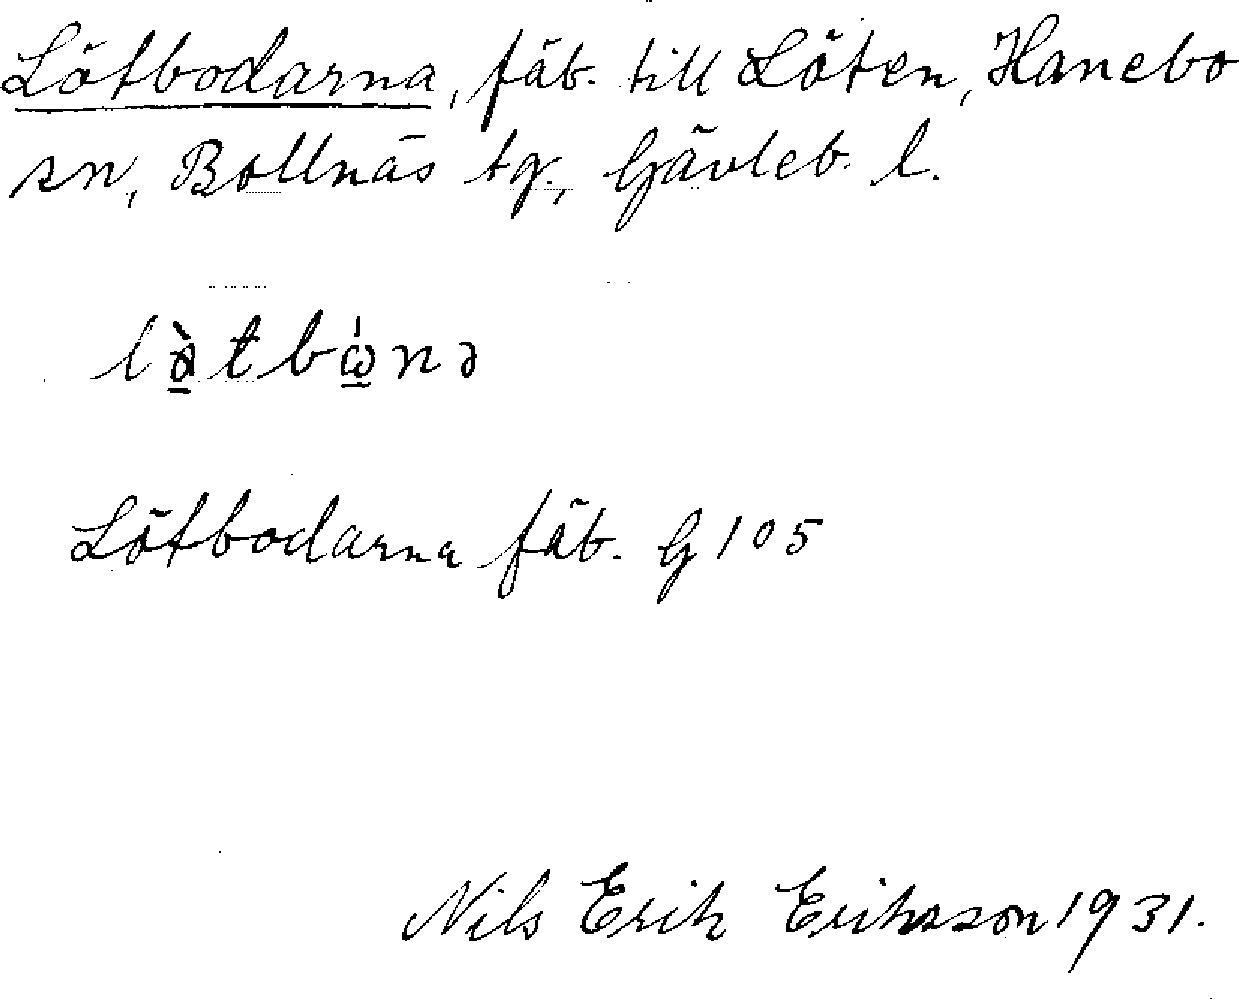 Lötbodarna, fäb. till Löten, Hanebo
sn, Bollnäs tg., Gävleb. l.
Lötbodarna fäb. G 105
Nils Erik Eriksson 1931.